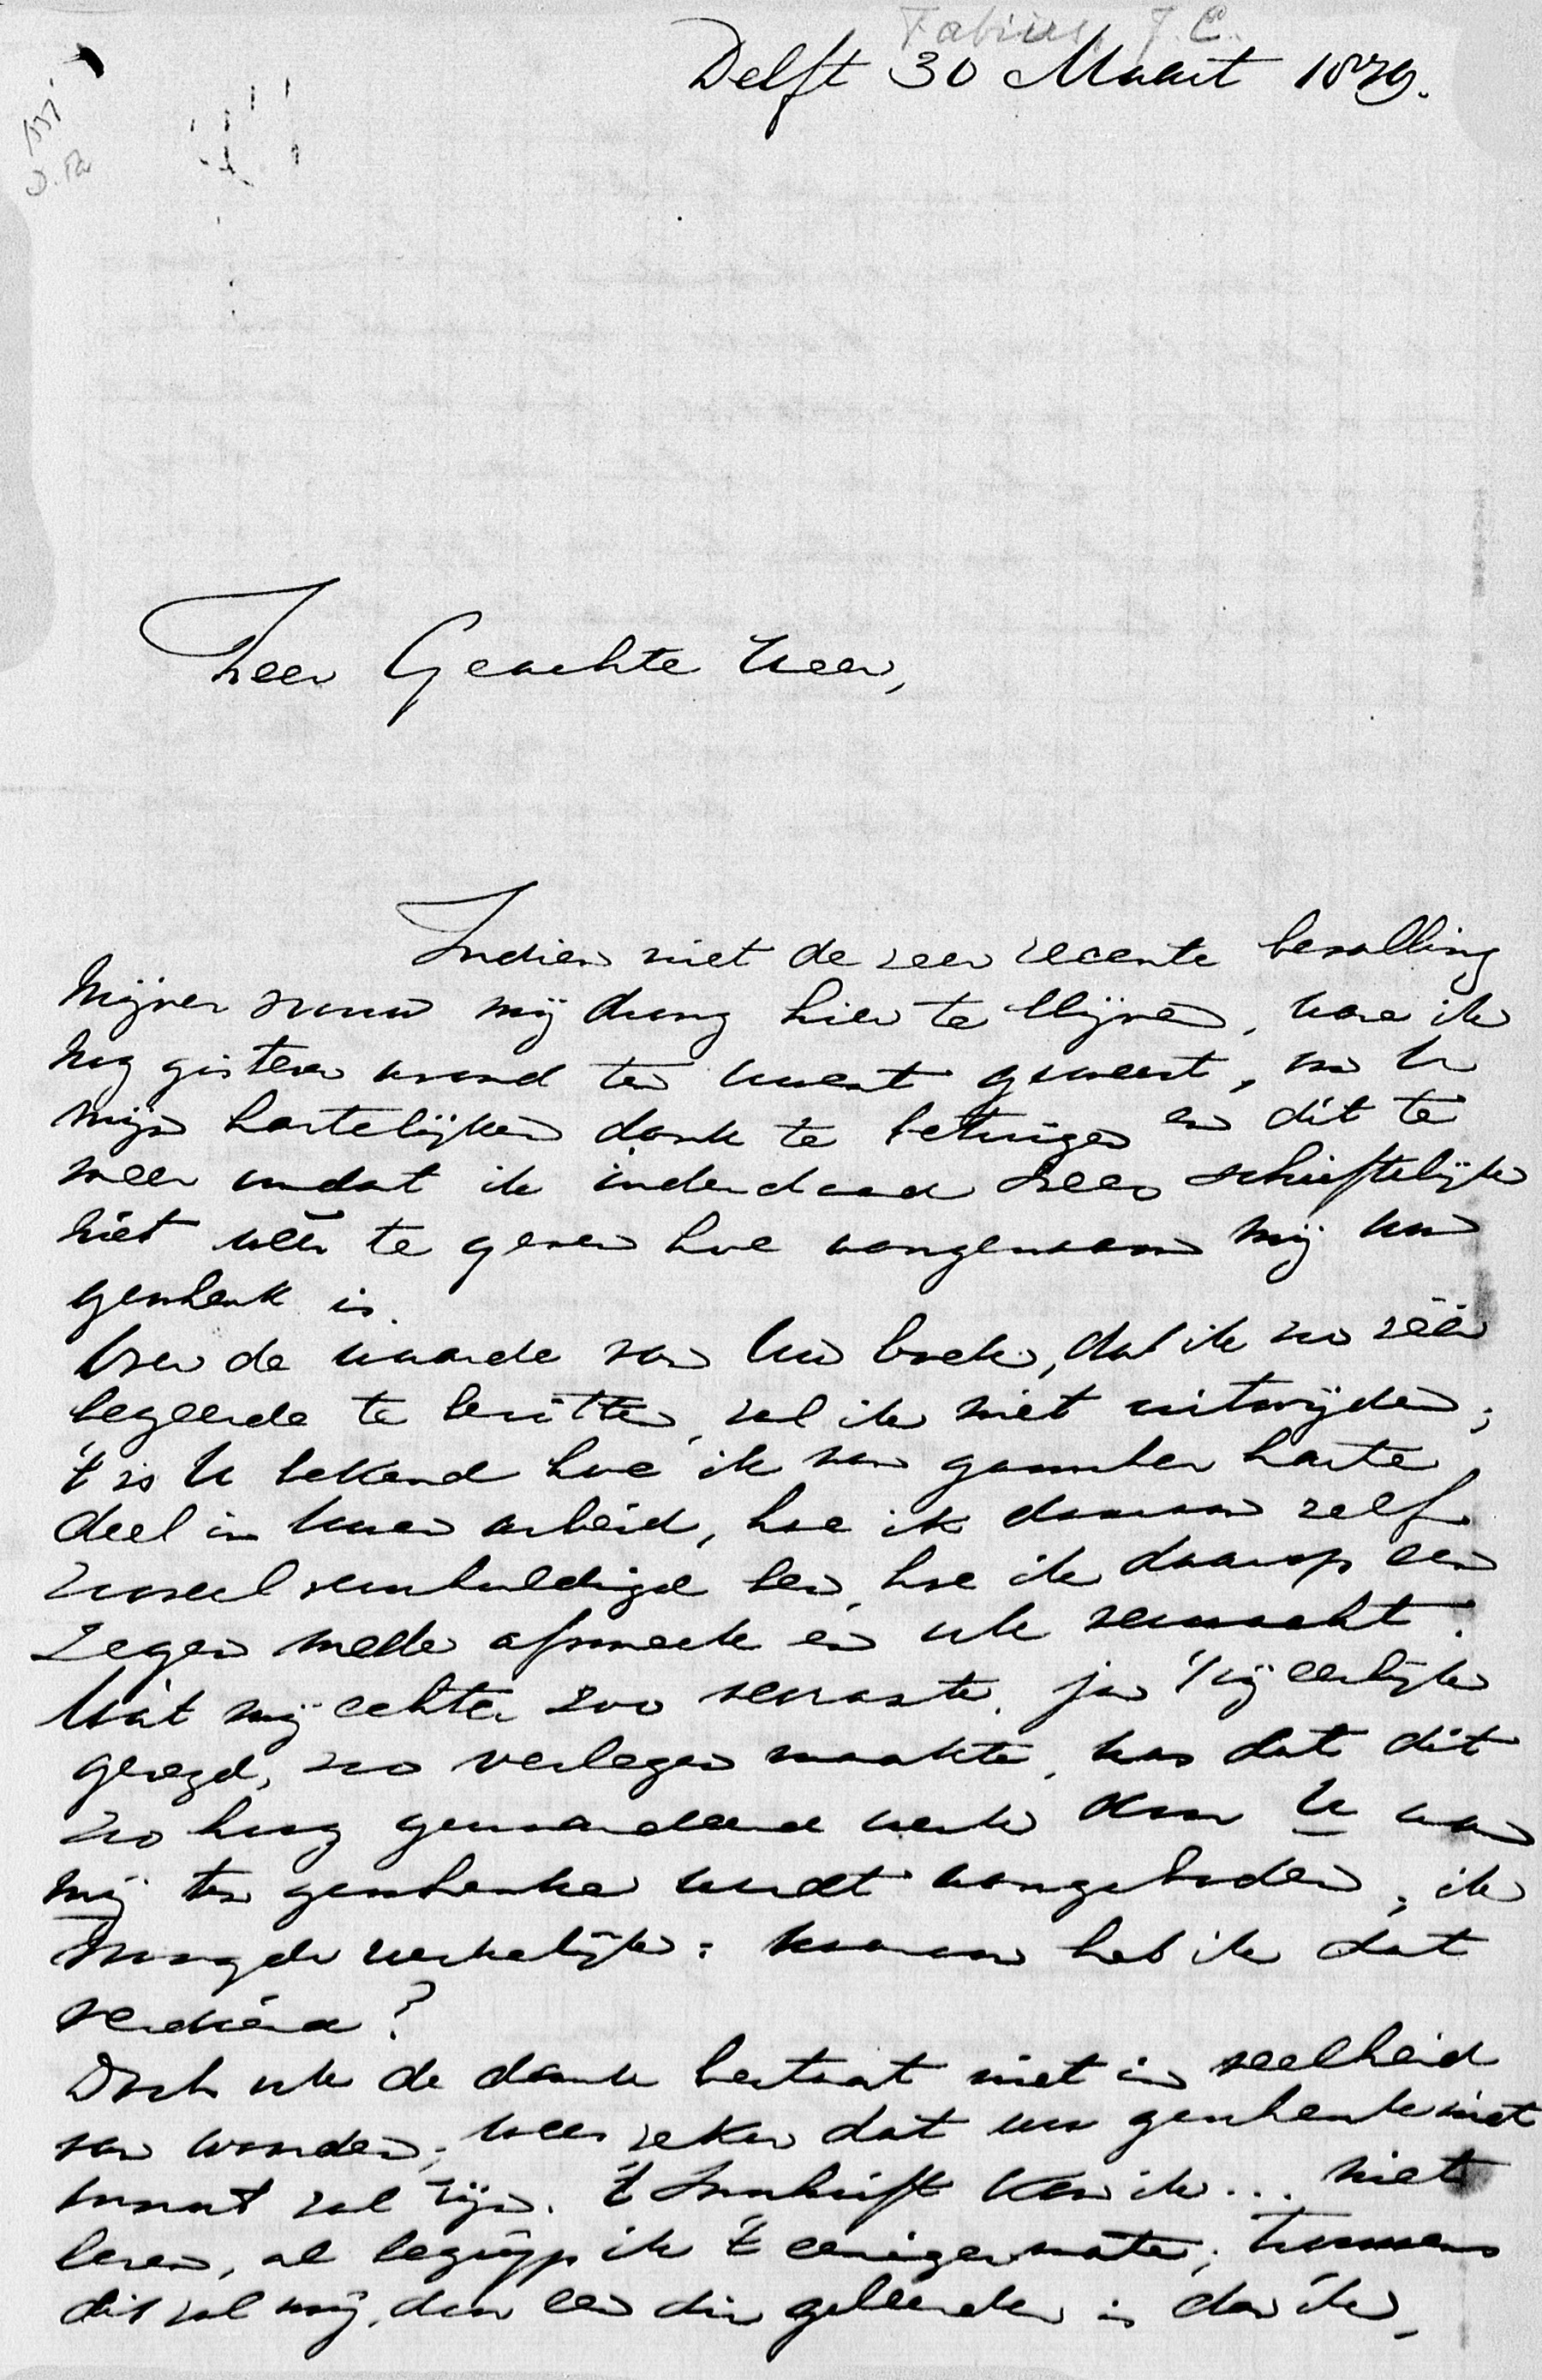 Fabius, J. C.
Delft 30 Maart 1879.
Zeer Geachte Heer,
Indien niet de zeer recente bevalling
mijner vrouw mij drong hier te blijven, ware ik
nog gisteren avond ten Uwent geweest, om U
mijn hartelijken dank te betuigen en dit te
meer omdat ik inderdaad vrees schriftelijk
niet wéér te geven hoe aangenaam mij uw
geschenk is.
Over de waarde van Uw boek, dat ik zoo zéér
begeerde te bezitten, zal ik niet uitwijden;
't is U bekend hoe ik van ganscher harte
deel in Uwen arbeid, hoe ik daaraan zelf
zooveel verschuldigd ben, hoe ik daarop een
zegen mede afsmeek en ook verwacht.
Wat mij echter zoo verraste, ja 't zij eerlijk
gezegd, zoo verlegen maakte, was dat dit
zoo hoog gewaardeerd werk door U aan
mij ten geschenke wordt aangeboden; ik
vraagde werkelijk: waaraan heb ik dat
verdiend?
Doch ook de dank bestaat niet in veelheid
van woorden; wees zeker dat uw geschenk niet
onnut zal zijn. 't Inschrift kan ik... niet
lezen, al begrijp ik 't eenigermate; trouwens
dit zal mij, door een die geleerder is dan ik,